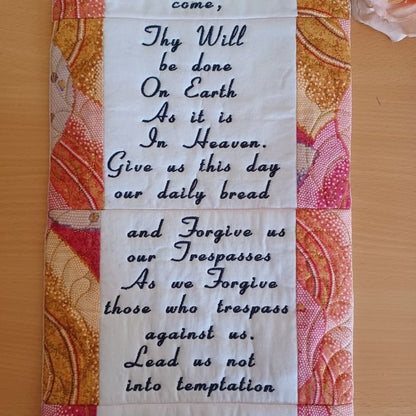 come,
Thy Will
be done
On Earth
As it is
In Heaven.
Give us this day
our daily bread
and Forgive us
our Trespasses
As we Forgive
those who trespass
against us.
Lead us not
into temptation